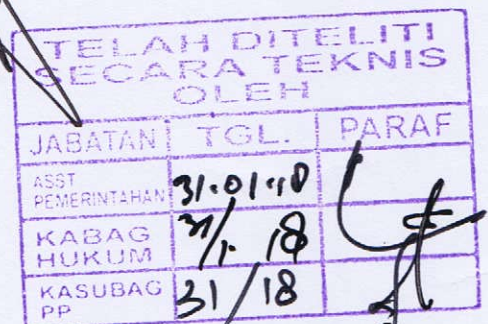 TELAH DITELITI
SECARA TEKNIS
OLEH
JABATAN TGL. PARAF
ASST PEMERINTAHAN 31-01-18
KABAG HUKUM 31/1 18
KASUBAG PP 31/18